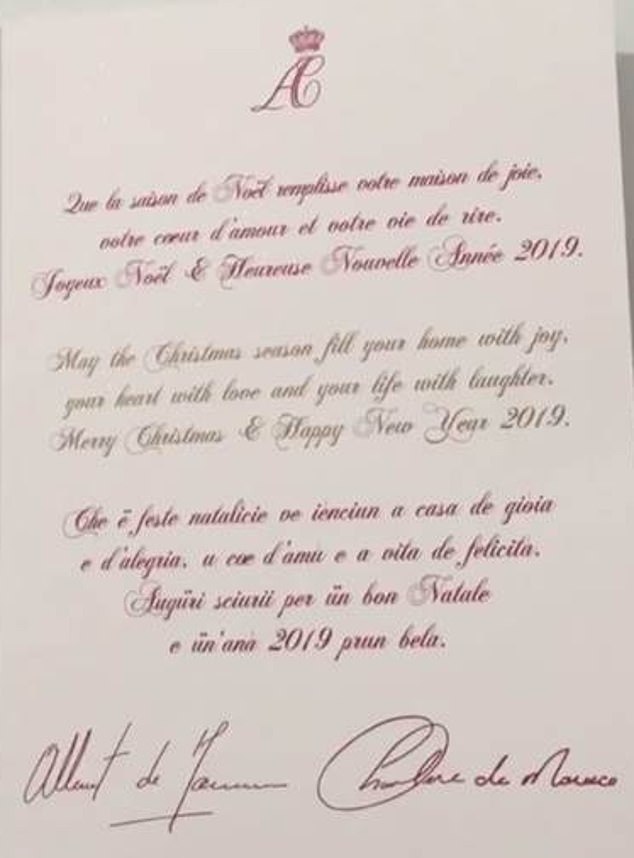 AC
Que la saison de Noël remplisse votre maison de joie,
votre cœur d'amour et votre vie de rire.
Joyeux Noël & Heureuse Nouvelle Année 2019.
May the Christmas season fill your home with joy,
your heart with love and your life with laughter.
Merry Christmas & Happy New Year 2019.
Che ë feste natalicie ve ienciun a casa de gioia
e d'alegria, u cœ d'amu e a vita de felicita.
Augüri sciurii per ün bon Natale
e ün'anà 2019 prun bela.
Albert de Monaco
Charlene de Monaco